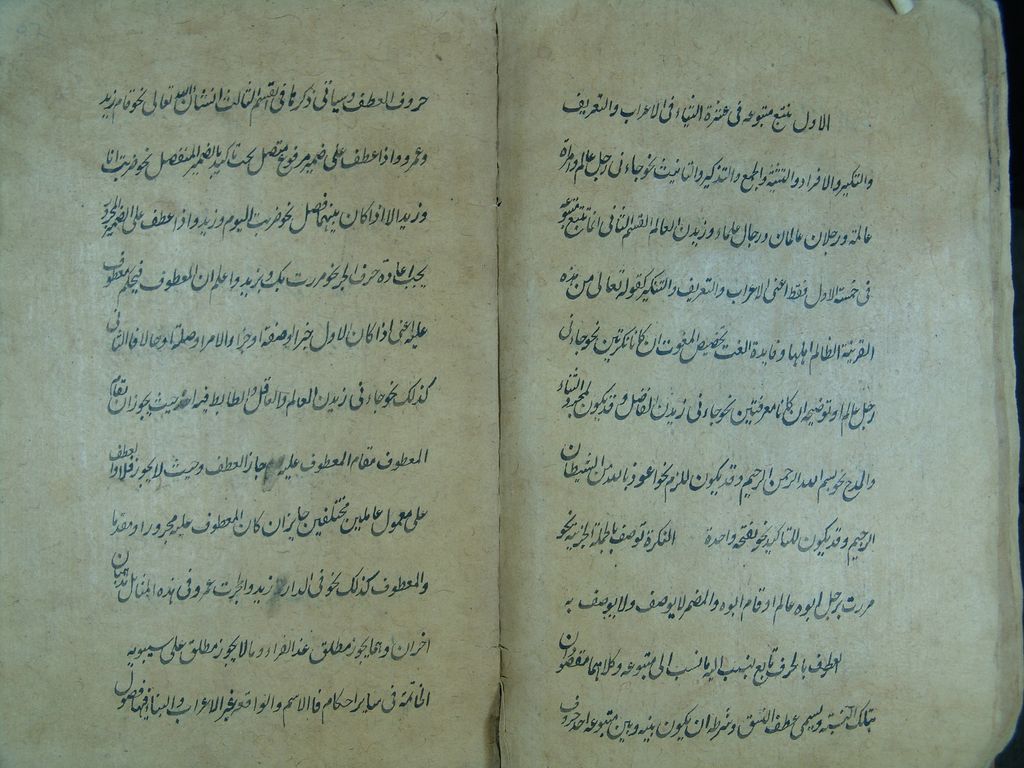 الاول يتبع متبوعه فى عشرة اشياء فى الاعراب والتعريف
والتنكير والافراد والتثنية والجمع والتذكير والتانيث نحو جاءنى رجل عالم وامراة
عالمة ورجلان عالمان ورجال علماء وزيدن العالم القسم الثانى انما يتبع متبوعه
فى خمست الاول فقط اعنى الاعراب والتعريف والتنكير كقوله تعالى من هذه
القرية الظالم اهلها وفايدة النعت تخصيص المنعوت ان كانا نكرتين نحو جاءنى
رجل عالم او توضيحه ان كانا معرفتين نحو جاءنى زيدن الفاضل وقد يكون لمجرد الثناء
والمدح نحو بسم الله الرحمن الرحيم وقد يكون للذم نحو اعوذ بالله من الشيطان
الرجيم وقد يكون للتاكيد نحو نفخة واحدة النكرة توصف بالجملة الخبرية نحو
مررت برجل ابوه عالم او قام ابوه والمضمر لا يوصف ولا يوصف به
العطف بالحرف تابع ينسب اليه ما نسب الى متبوعه وكلاهما مقصودن
بتلك النسبة ويسمى عطف النسق وشرطه ان يكون بينه وبين متبوعه احد حروف
حروف العطف وسياتى ذكرها فى القسم الثالث انشاء الله تعالى نحو قام زيد
وعمرو واذا عطف على ضمير مرفوع متصل يجب تاكيد بالضمير المنفصل نحو ضربت انا
وزيد الا اذا كان بينهما فصل نحو ضربت اليوم وزيد واذا عطف على الضمير المجرور
يجب اعادة حرف الجر نحو مررت بك وبزيد واعلم ان المعطوف فى حكم معطوف
عليه اعنى اذا كان الاول خبرا او صفة او جزا والامر او صلة او حالا فالثانى
كذلك نحو جاءنى زيدن العالم والعاقل والضابط فيه انه حيث يجوز ان يقام
المعطوف مقام المعطوف عليه جاز العطف وحيث لا يجوز فلا العطف
على معمول عاملين مختلفين جايز ان كان المعطوف عليه مجرورا ومقدما
والمعطوف كذلك نحو فى الدار زيد والحجرت عمرو فى هذه المثال مذهبان
اخران وهما يجوز مطلق عند الفراء وما لا يجوز مطلق على سيبويه
الخاتمة فى ساير احكام فا الاسم والواقعه غير الاعراب والبناء فيها فصول